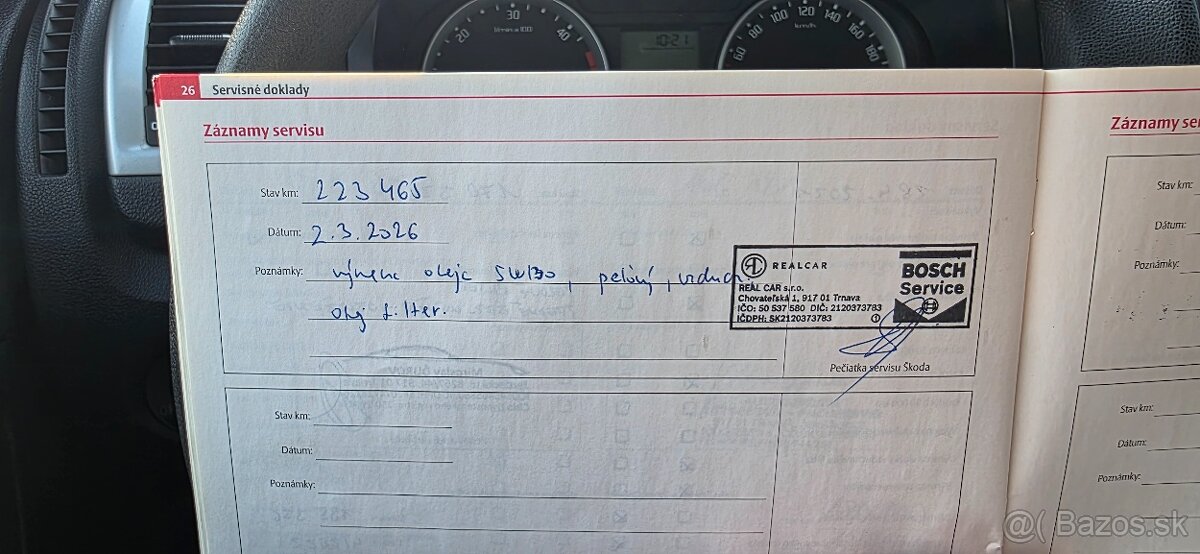 20 30 40
1/min x 100
10:21
60 80 100 120 140 160 180
km/h
26 Servisné doklady
Záznamy servisu
Stav km: 223 465
Dátum: 2.3.2026
Poznámky: výmena oleja 5W/30, peľový, vzduch.
olej filter.
REALCAR
REAL CAR s.r.o.
Chovateľská 1, 917 01 Trnava
IČO: 50 537 580 DIČ: 2120373783
IČDPH: SK2120373783 1
BOSCH
Service
Pečiatka servisu Škoda
Stav km:
Dátum:
Poznámky:
Záznamy ser
Stav km:
Dátum:
Poznámky:
Stav km:
Dátum:
Poznámky:
@( Bazos.sk